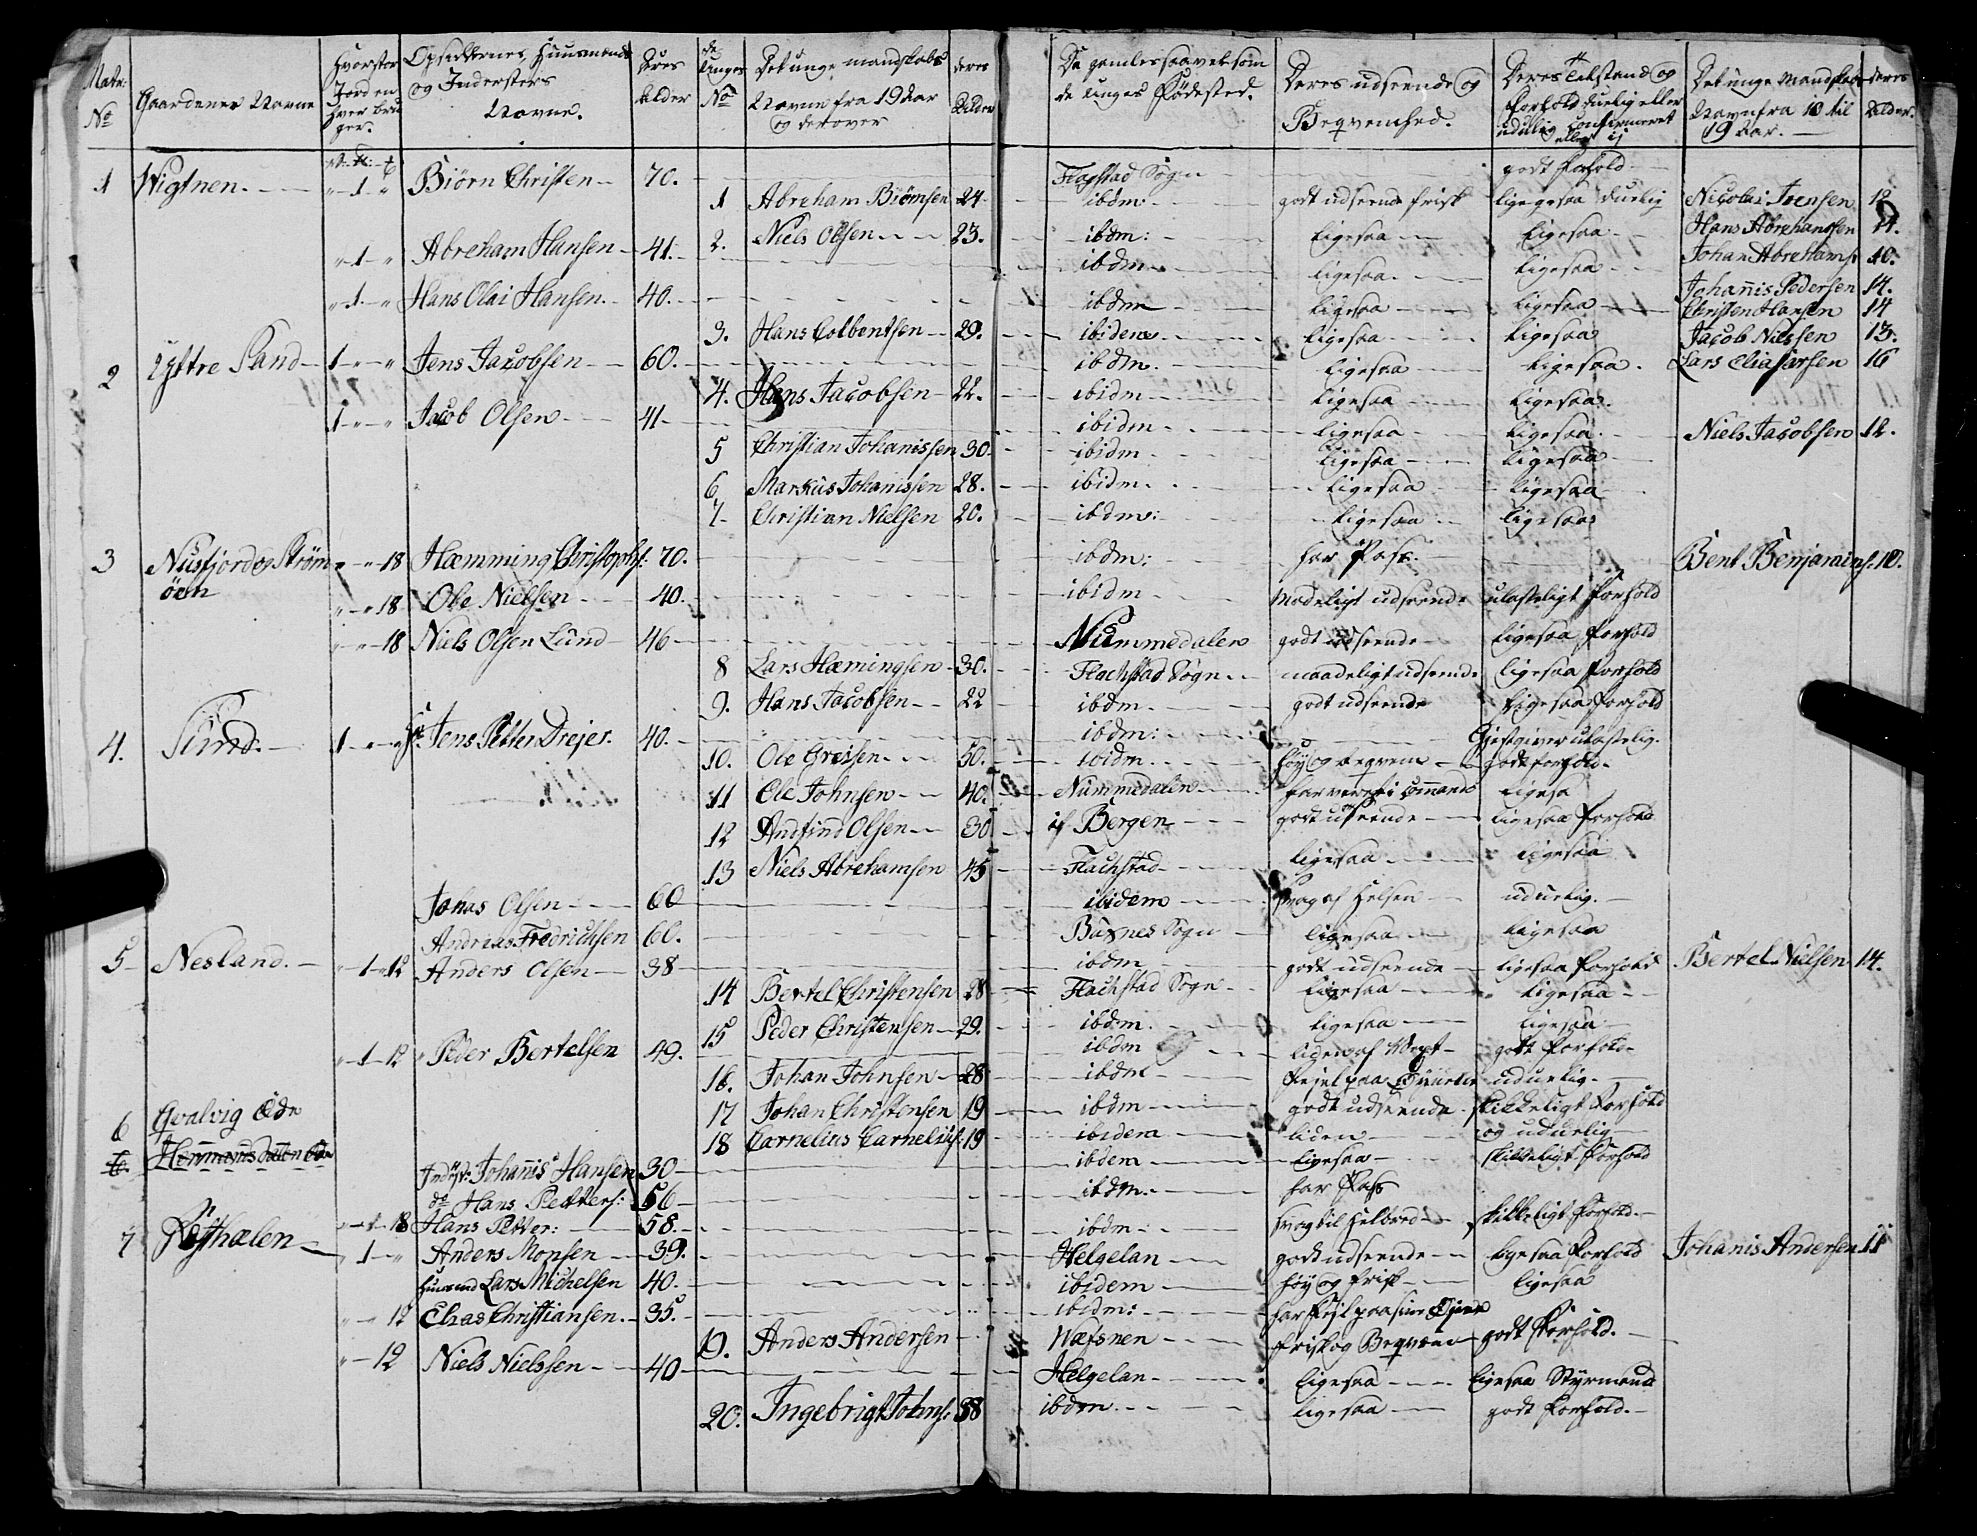 Matr: No | Gaardenes Navne | Hvorstor Jord en hver bruger. | Opsiddernes, Huusmænds og Indersters Navne. | Deres Alder | de Unges No | Det unge mandskabs Navne fra 19 Aar og derover | deres Alder | De gamles saavelsom de Unges Fødested. | Deres udseende og Beqvemhed. | Deres Tilstand og Forhold duelig eller uduelig confirmeret eller ej | Det unge Mandskab Navn fra 10 til 19 Aar. | deres Alder.
1 Wigtnen. " 1 " Biørn Christen 70. Flagstad Sogn godt Forhold
1 Abreham Biørnsen 24 ibdm: godt udseende frisk ligegesaa duelig Nicolai Ivensen 12
2. Niels Olsen 23. ibdm: Ligesaa Ligesaa Hans Abrehamsen 11.
" 1 " Abreham Hansen 41. ibdm ligesaa. ligesaa Johan Abrehams: 10.
" 1 " Hans Olai Hansen. 40. ibdm ligesaa ligesaa Johannis Pedersen 14.
Christen Hansen 14
3. Hans Colbentsen 29. ibidem ligesaa ligesaa Jacob Nilssen 13.
2 Yttre Sand 1 " " Jens Jacobsen 60. ibdm. ligesaa ligesaa. Lars Eliasarsen 16
4. Hans Jacobsen 22. ibidm ligesaa ligesaa.
1 " " Jacob Olsen 41 ibidm ligesaa ligesaa. Niels Jacobsen 12.
5 Christian Johanissen 30. ibidm ligesaa ligesaa
6. Markus Johanissen 28. ibidm. ligesaa ligesaa
7 Christian Nielsen 20. ibdm: ligesaa ligesaa
3 Nusfjord og Strøm " " 18 Hæmming Christophs: 70. ibdm: har Pass. Bent Benjamins: 10.
øen " " 18 Ole Nielsen 40. ibidm Modeligt udseende ulasteligt Forhold
" " 18 Niels Olsen Lund 46 Nummedalen godt udseende ligesaa Forhold
8 Lars Hæmingsen 30. Flachstad Sogn maadeligt udseende ligesaa Forhold
9. Hans Jacobsen 22 ibdm. godt udseende ligesaa Forhold
4. Sund. 1 " " Jens Petter Drejer. 40. ibdm: Gjestgiver ulastelig.
10. Ole Greisen 50. ibidm. høj og beqvem godt forhold.
11 Ole Johnsen 40. Nummedalen har veret i Commando ligesa
12 Andfind Olsen 30 Bergen godt udseende ligesaa Forhold
13 Niels Abrehamsen 45 Flachstad ligesaa ligesaa
Jonas Olsen 60 ibidem svag af Helsen uduelig.
Andreas Fredrichsen 60. Buxnes Sogn ligesaa ligesaa
5 Nesland. " 1 " 12 Anders Olsen 38 ibdm godt udseende ligesaa Forhold Bertel Nielsen 14.
14 Bertel Christensen 28 Flachstad Sogn ligesaa ligesaa
15 Peder Christensen 29. ibdm. ligesaa ligesaa
" 1 12 Peder Bertelsen 49. ibdm liden af Vext godt Forhold
16. Johan Johnsen 28 ibdm Fejl paa uduelig.
17 Johan Christensen 19 ibdm godt udseende skikkeligt Forhold
6 Qvalvig Øde 18 Carnelius Carnelius: 19 ibidem liden og uduelig
6. Hermandsdalen Øde Indst: Johannis Hansen 30 ibdem ligesaa skikkeligt Forhold
do Hans Petters: 56 ibdm. har Pass
7 18 Hans Petter: 58. ibdm svag til Helbred skikkeligt Forhold.
" 1 " Anders Monsen 39. Helgelan godt udseende ligesaa Forhold Johanis Andersen 11
Huusmand Lars Michelsen 40. ibidem høj og frisk ligesaa
" " 12 Elias Christiansen. 35. ibidm: har Fejl paa sine
19. Anders Andersen Wefsnen frisk og Beqvem godt Forhold.
" 12 Niels Nielssen 40 Helgelan ligesaa ligesaa Styrmand
20. Ingebrigt Johns: 38 ibdm. ligesaa godt Forhold.